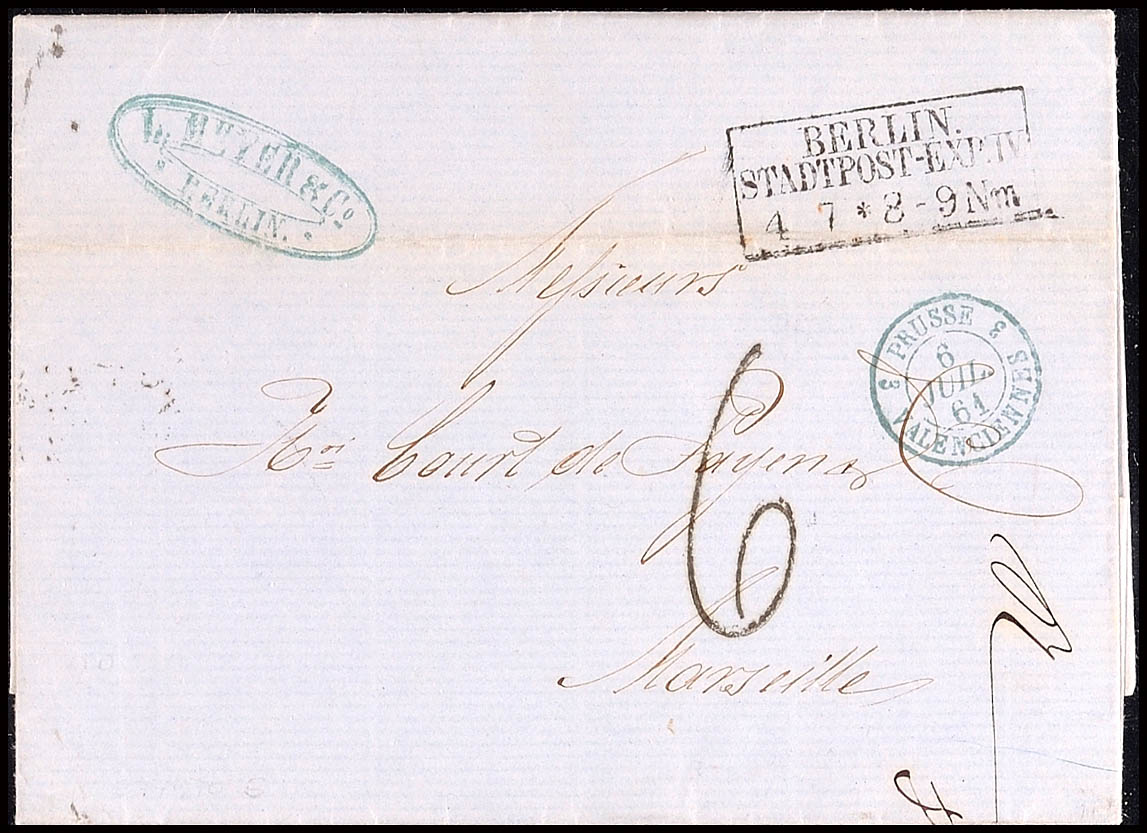 L. MEYER & Co.
BERLIN.
BERLIN.
STADTPOST-EXP. IV
4 7 * 8-9 Nm
Messieurs
PRUSSE
6
JUIL.
61
VALENCIENNES
3 3
Court de Payen
6
Marseille